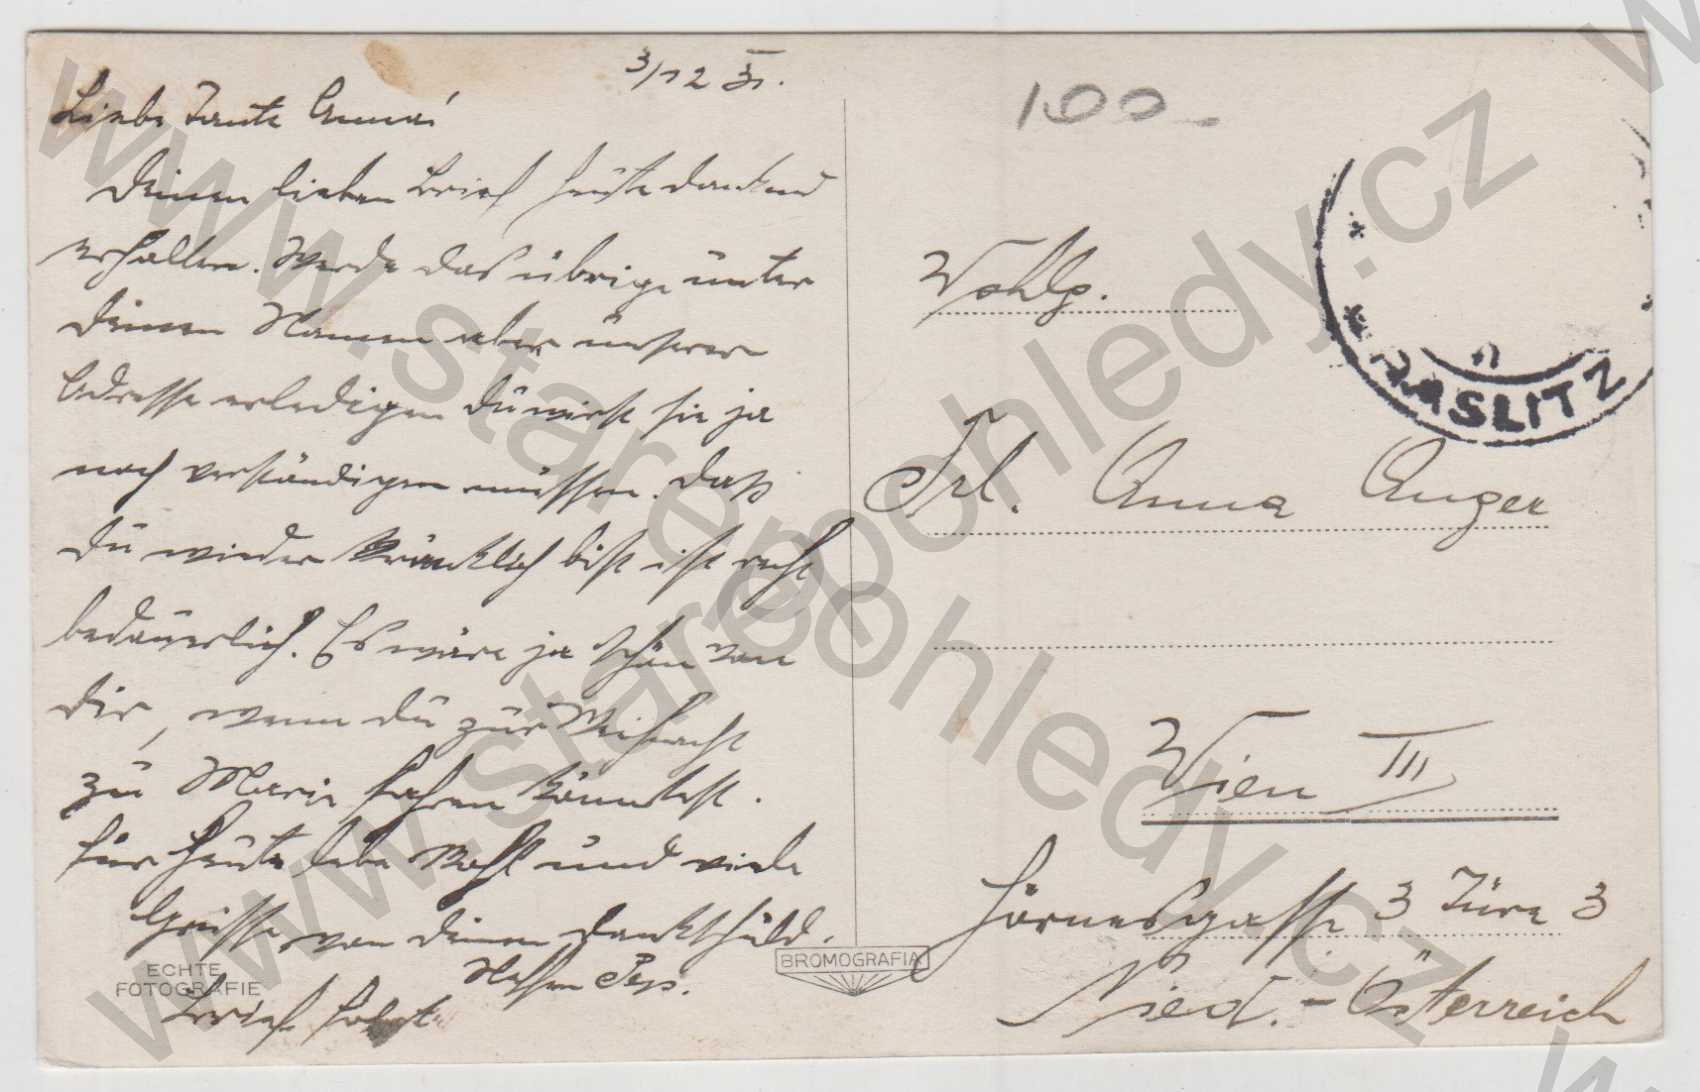 3/12 31.
Liebe Tante Anna!
Deinen lieben Brief heute dankend
erhalten. Werde das übrige unter
deinen Namen aber unserer
Adresse erledigen Du wirst sie ja
noch verständigen müssen. Daß
Du wieder kränklich bist ist recht
bedauerlich. Es wäre ja schön von
Dir, wenn Du zur Weihnacht
zu Marie fahren könntest.
Für heute lebe wohl und viele
Grüsse von deinen dankschuld.
Neffen Pepp.
Brief folgt
ECHTE
FOTOGRAFIE
BROMOGRAFIA
100-
GRASLITZ
Wohlg.
Frl. Anna Anger
Wien III
Hörnesgasse 3 Türe 3
Nied.-Österreich
www.starepohledy.cz
www.starepohledy.cz